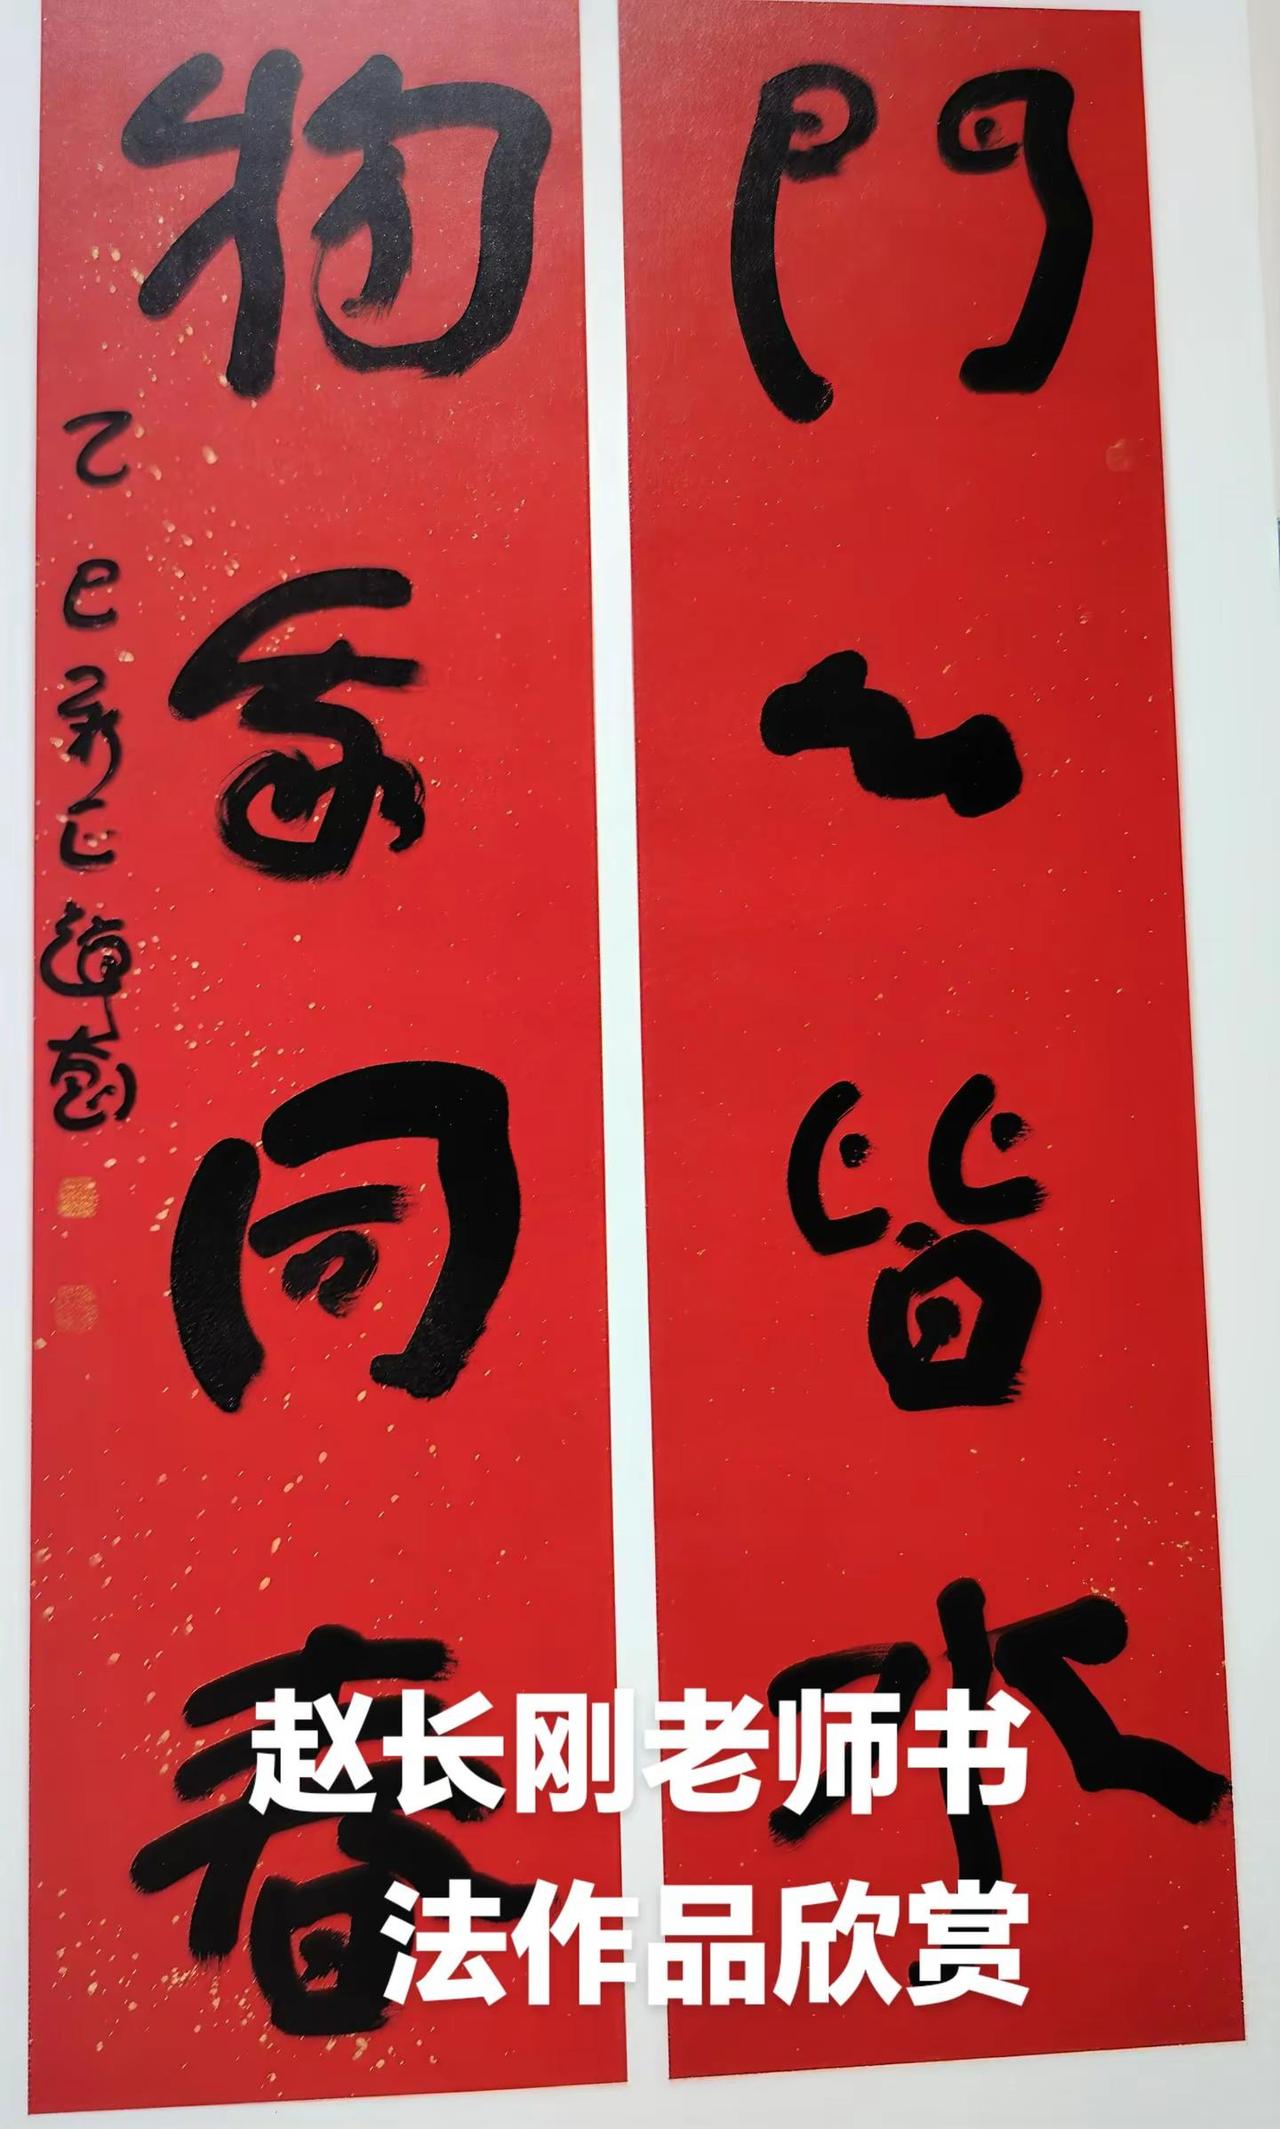 門〻皆水
物同春
乙巳新正
赵长刚老师书
法作品欣赏